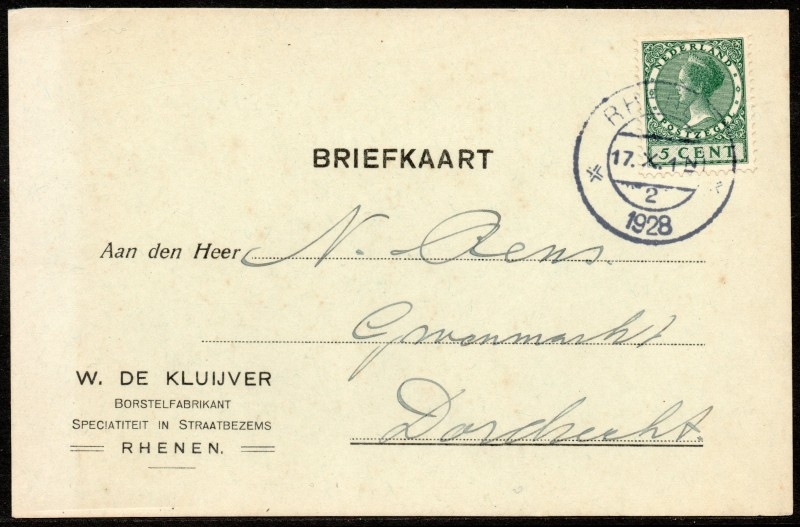 NEDERLAND
POSTZEGEL
5 CENT
RH
17.X.
2
1928
BRIEFKAART
Aan den Heer N. Rens.
Groenmarkt
Dordrecht.
W. DE KLUIJVER
BORSTELFABRIKANT
SPECIATITEIT IN STRAATBEZEMS
RHENEN.